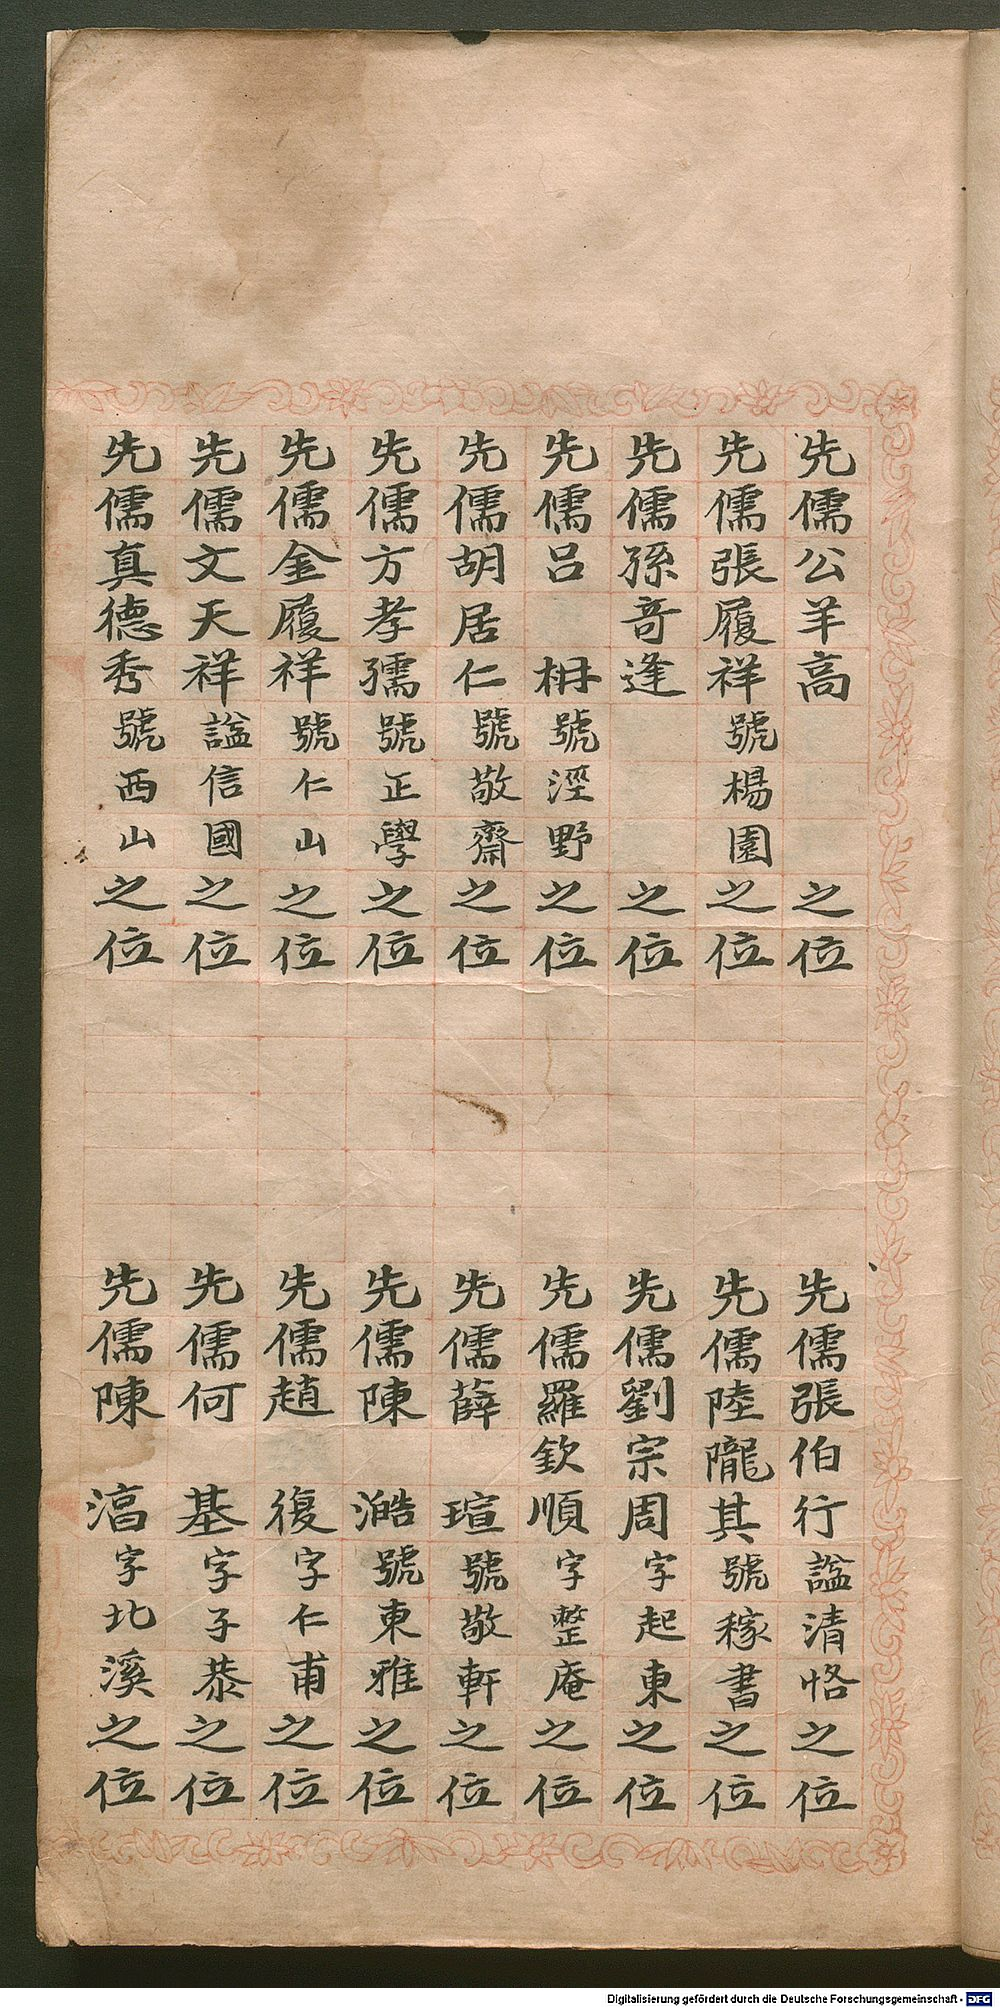 先儒公羊高之位
先儒張履祥號楊園之位
先儒孫奇逢之位
先儒呂柟號涇野之位
先儒胡居仁號敬齋之位
先儒方孝孺號正學之位
先儒金履祥號仁山之位
先儒文天祥諡信國之位
先儒真德秀號西山之位
先儒張伯行諡清恪之位
先儒陸隴其號稼書之位
先儒劉宗周字起東之位
先儒羅欽順字整庵之位
先儒薛瑄號敬軒之位
先儒陳澔號東雅之位
先儒趙復字仁甫之位
先儒何基字子恭之位
先儒陳湻字北溪之位
Digitalisierung gefördert durch die Deutsche Forschungsgemeinschaft - DFG